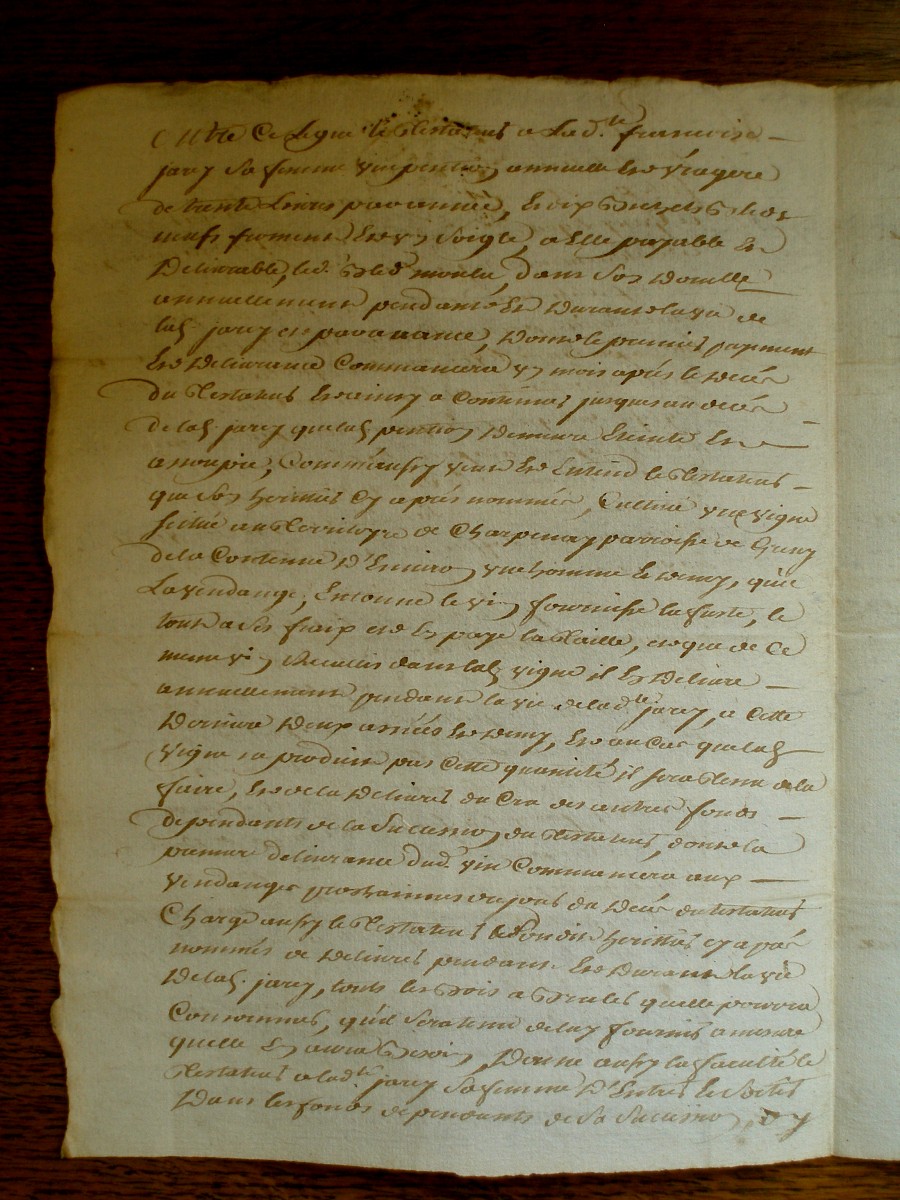 Outre ce legue le Testateur a lad.te francoise
jarey sa femme une pention annuelle et viagere
de trente Livres par année, et dix bichets bled
neuf froment et un soigle, a Elle payable et
Delivrable, led. bled moulu, dans son Domille
annuellement pendant et Durant la vie de
lad. jarey et par avance, Dont le premier payment
et Delivrance Commancera un mois après le décès
du Testateur et ainsy a Continuer jusques au décés
de lad. jarey que lad. pention Demeure Eteinte et
assoupie, Comm'aussy veut et Entend le Testateur
que son heritier cy après nommé, Cultive une vigne
scitué au Territoyre de Charpenay parroisse de
de la Contenue D'Environ une homme et demy, qu'il
La vendange, Entonne le vin, fournisse la fuste, le
tout a ses fraix et En paye la Taille, et que de ce
meme vin Recuilli dans lad. vigne il En Delivre
annuellement pendant la vie de lad.te jarey, a cette
Derniere Deux anées et demy, et au Cas que lad.
vigne ne produise pas cette quantité il sera Tenu de la
faire, et de la Delivrer du Cru des autres fonds
dependants de la Sucession du Testateur, dont la
premiere delivrance dud. vin Commancera aux
vendanges prochaines du jour du décés du testateur
Charge aussy le Testateur sond. heritier cy après
nommé de Delivrer pendant et Durant la vie
de lad. jarey, tout les bois a bruler quelle pourra
Consommer, qu'il sera tenu de luy fournir a mesure
quelle En aura besoin, Donne aussy la faculté le
Testateur a lad.te jarey sa femme D'Entrer et Sortir
Dans les fonds dependants de sa Sucession, d'y